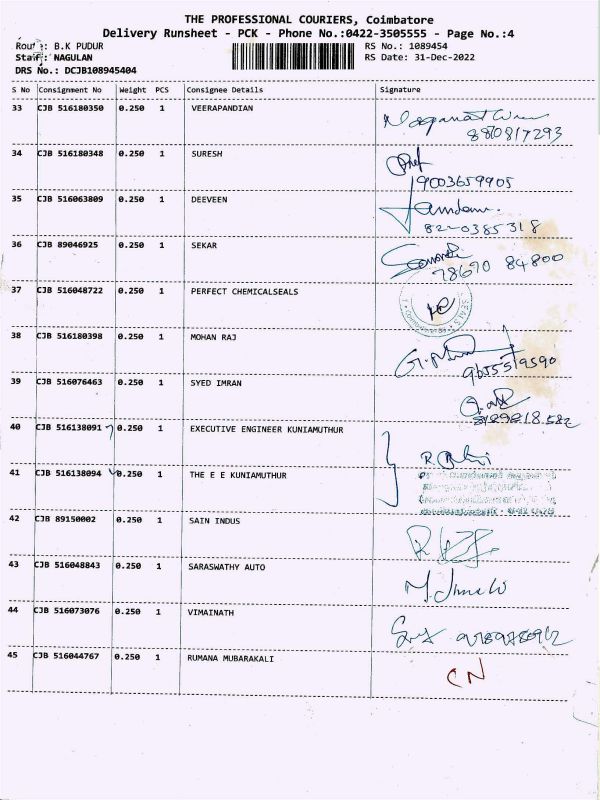 THE PROFESSIONAL COURIERS, Coimbatore
Delivery Runsheet - PCK - Phone No.:0422-3505555 - Page No.:4
Route: B.K PUDUR
RS No.: 1089454
Staff: NAGULAN
RS Date: 31-Dec-2022
DRS No.: DCJB108945404
S No Consignment No Weight PCS Consignee Details Signature
33 CJB 516180350 0.250 1 VEERAPANDIAN
34 CJB 516180348 0.250 1 SURESH
9003659905
35 CJB 516063809 0.250 1 DEEVEEN
36 CJB 89046925 0.250 1 SEKAR
78670 84800
37 CJB 516048722 0.250 1 PERFECT CHEMICALSEALS
38 CJB 516180398 0.250 1 MOHAN RAJ
9655519590
39 CJB 516076463 0.250 1 SYED IMRAN
40 CJB 516138091 0.250 1 EXECUTIVE ENGINEER KUNIAMUTHUR
41 CJB 516138094 0.250 1 THE E E KUNIAMUTHUR
42 CJB 89150002 0.250 1 SAIN INDUS
43 CJB 516048843 0.250 1 SARASWATHY AUTO
44 CJB 516073076 0.250 1 VIMAINATH
45 CJB 516044767 0.250 1 RUMANA MUBARAKALI
CN